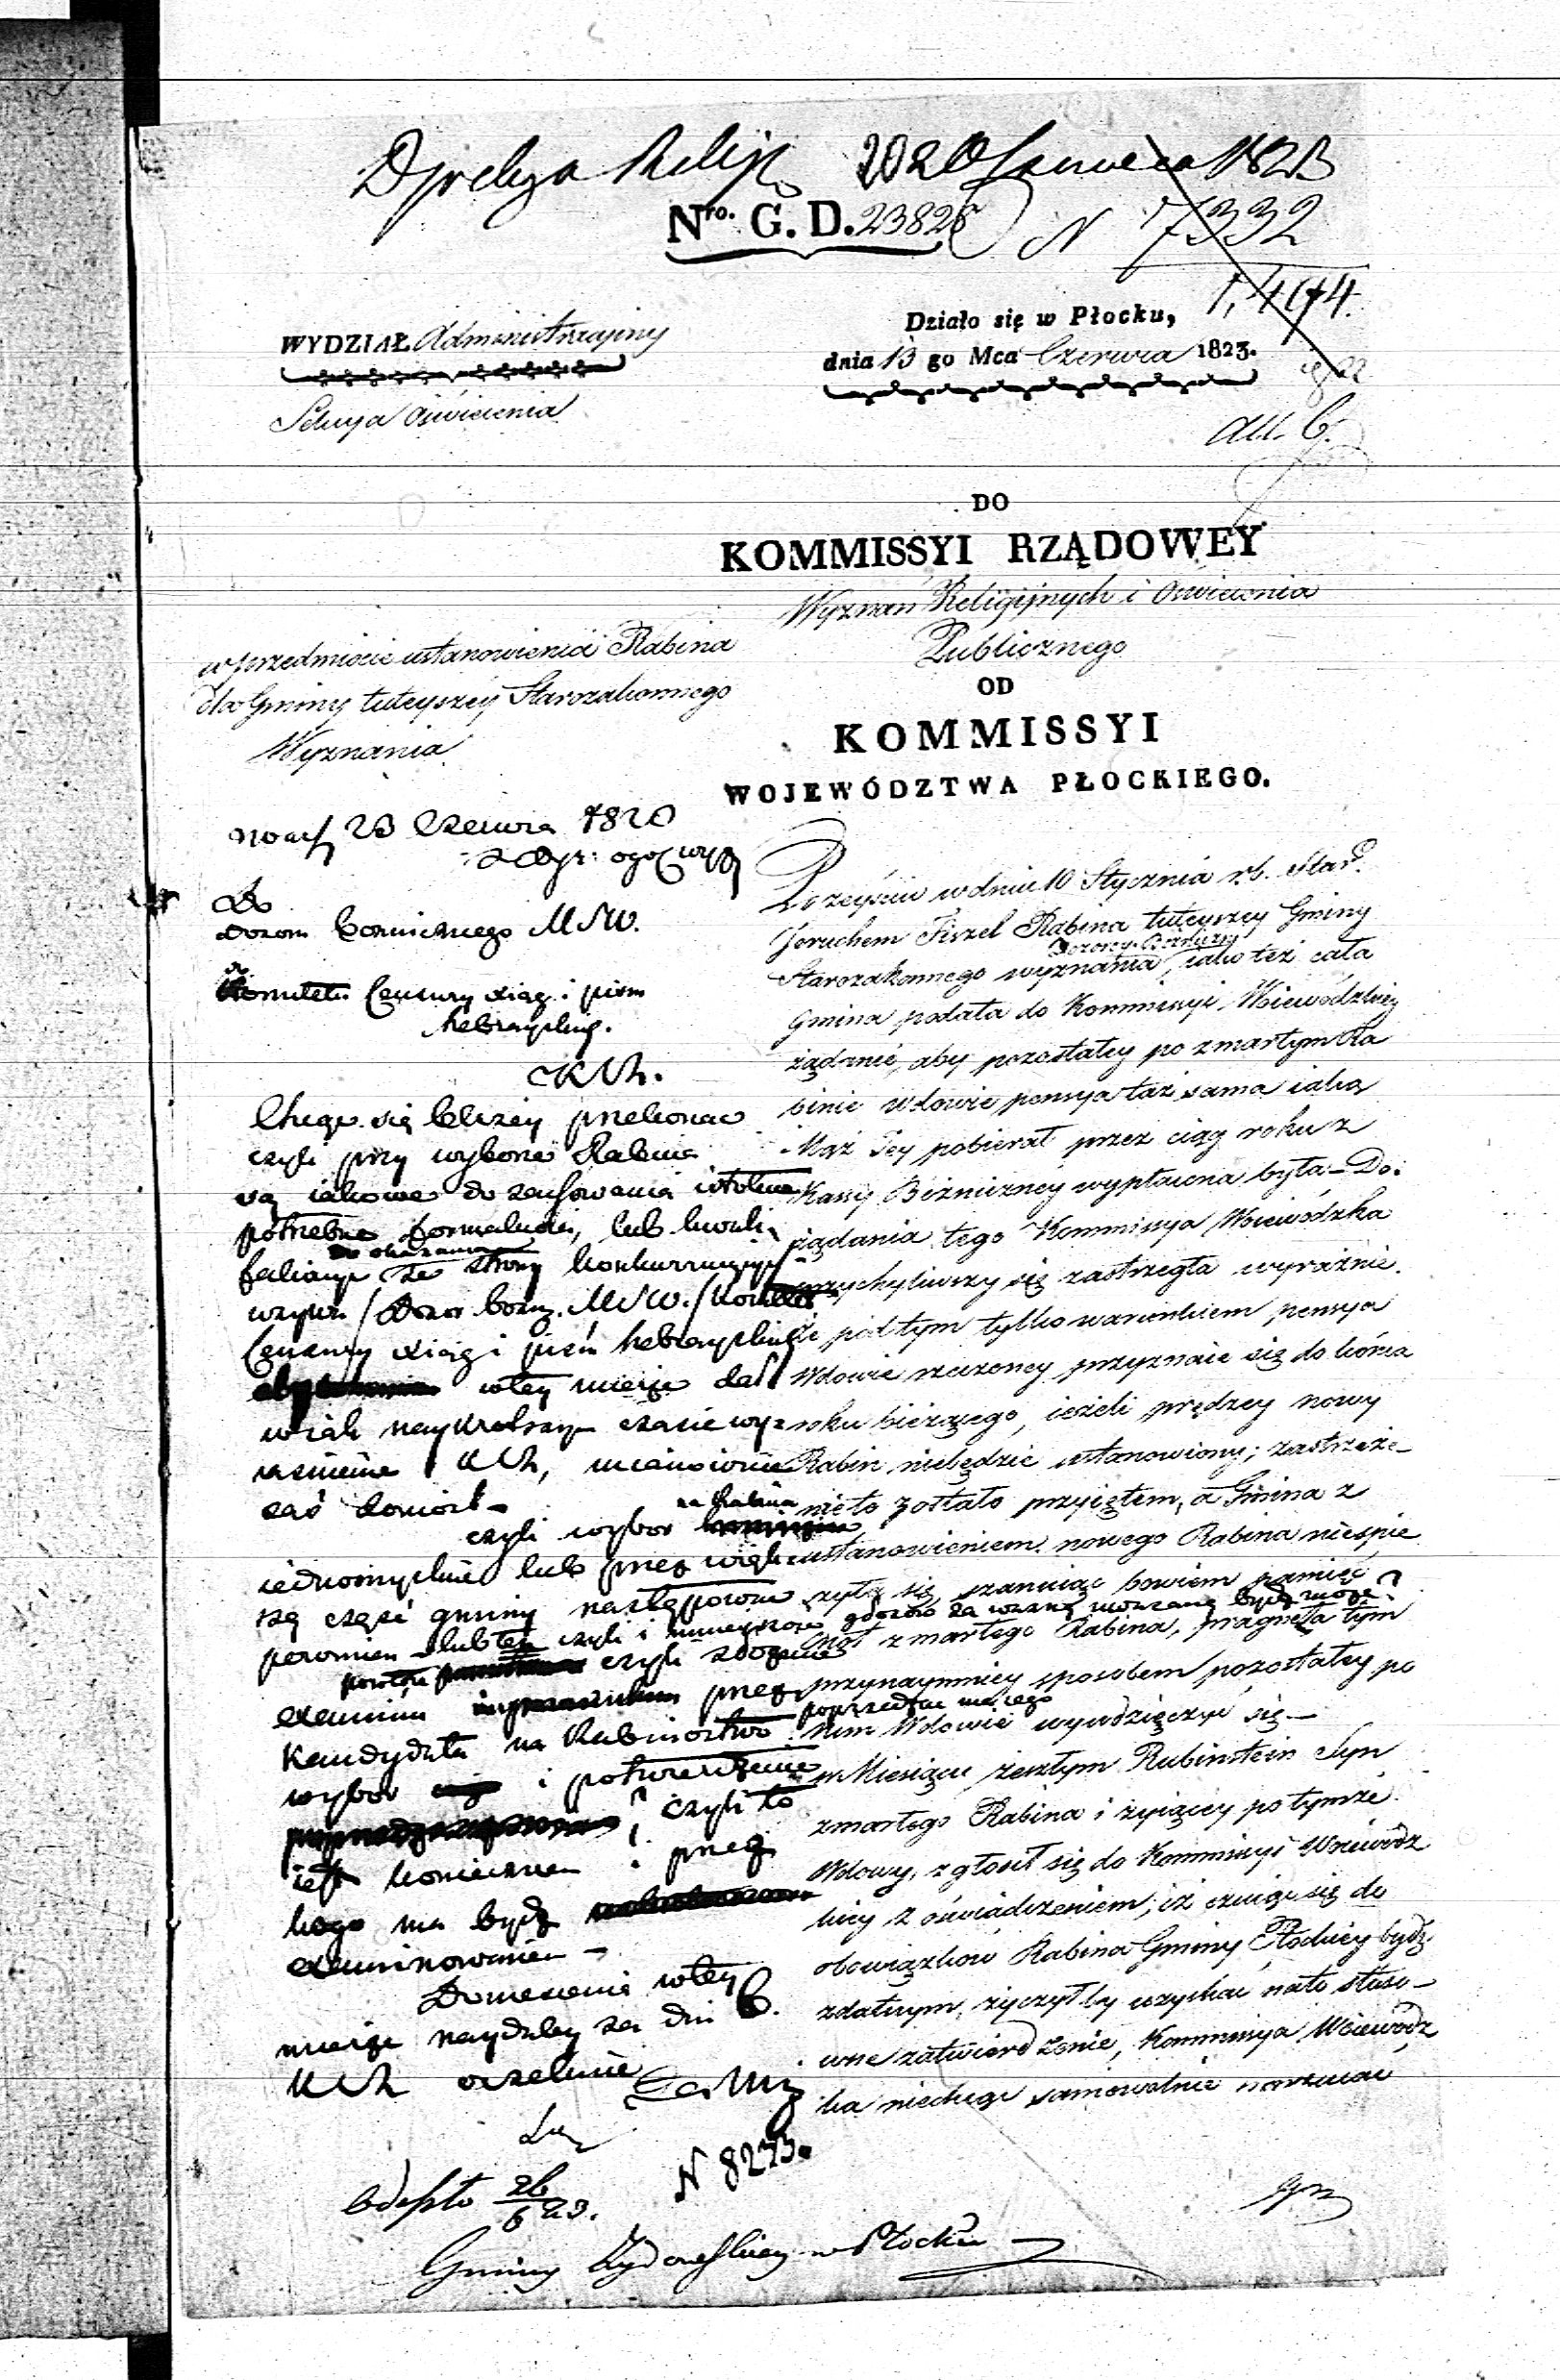 20 Czerwca 1823
Nro. G. D. 23826
N 7332
1,494.
WYDZIAŁ Administracyiny
Sekcya Oświecenia
Działo się w Płocku,
dnia 13 go Mca Czerwca 1823.
DO
KOMMISSYI RZĄDOWEY
Wyznań Religijnych i Oświecenia
Publicznego
OD
KOMMISSYI
WOJEWÓDZTWA PŁOCKIEGO.
w przedmiocie ustanowienia Rabina
dla Gminy tuteyszey Starozakonnego
Wyznania
Po zeyściu w dniu 10 Stycznia r.b. Star.
Jeruchem Fiszel Rabina tuteyszey Gminy
Starozakonnego wyznania, Dozorcy Bóżniczy iako też cała
Gmina podała do Kommissyi Woiewódzkiey
żądanie, aby pozostałey po zmarłym Ra
binie wdowie pensya taż sama iaką
Mąż Jey pobierał przez ciąg roku z
Kassy Bóżniczney wypłacona była - Do
żądania tego Kommissya Woiewódzka
przychyliwszy się zastrzegła wyraźnie
że pod tym tylko warunkiem pensya
Wdowie rzeczoney przyznaie się do końca
roku bieżącego, ieżeli prędzey nowy
Rabin niebędzie ustanowiony; zastrzeże-
nie to zostało przyiętem, a Gmina z
ustanowieniem nowego Rabina niespie
szyła się, szanuiąc bowiem pamięć
cnot zmarłego Rabina, pragnęła tym
przynaymniey sposobem pozostałey po
nim Wdowie wywdzięczyć się -
w Miesiącu zeszłym Rubinstein Syn
zmarłego Rabina i żyiącey po tymże
Wdowy, zgłosił się do Kommissyi Woiewódz
kiey z oświadczeniem, iż czuiąc się do
obowiązków Rabina Gminy Płockiey bydź
zdatnym, życzył by uzyskać na to stoso-
wne zatwierdzenie, Kommissya Woiewódz
ka niechcąc samowolnie narzucać
23 Czerwca
Do
Dozoru Bożniczego M S W.
Komitetu Cenzury xiąg i pism
hebrayskich.
Chcąc się bliżey przekonać
czyli przy wyborze Rabina
są iakowe do zachowania istotnie
potrzebne formalności, lub kwali
fikacye do okazania ze strony konkurruiących
wzywa / Dozor Bożn. M S W. / Komitet
Cenzury xiąg i pism hebrayskich
w tey mierze dał
w iak naykrótszym czasie wy-
iaśnienie
zaś doniósł -
czyli wybor na Rabina
iednomyślnie lub przez więk-
szą część gminy nastąpować
powinien
czyli złożenie
examinu przez
Kandydata na Rabinostwo poprzedzać maiącego
wybor i potwierdzenie
czyli to
iest koniecznem i przez
kogo ma bydź
examinowanym -
Doniesienia w tey
mierze naydaley za dni 6.
oczekuie
N 8233.
Odeszło 26/6 23.
Gminy Żydowskiey w Płocku